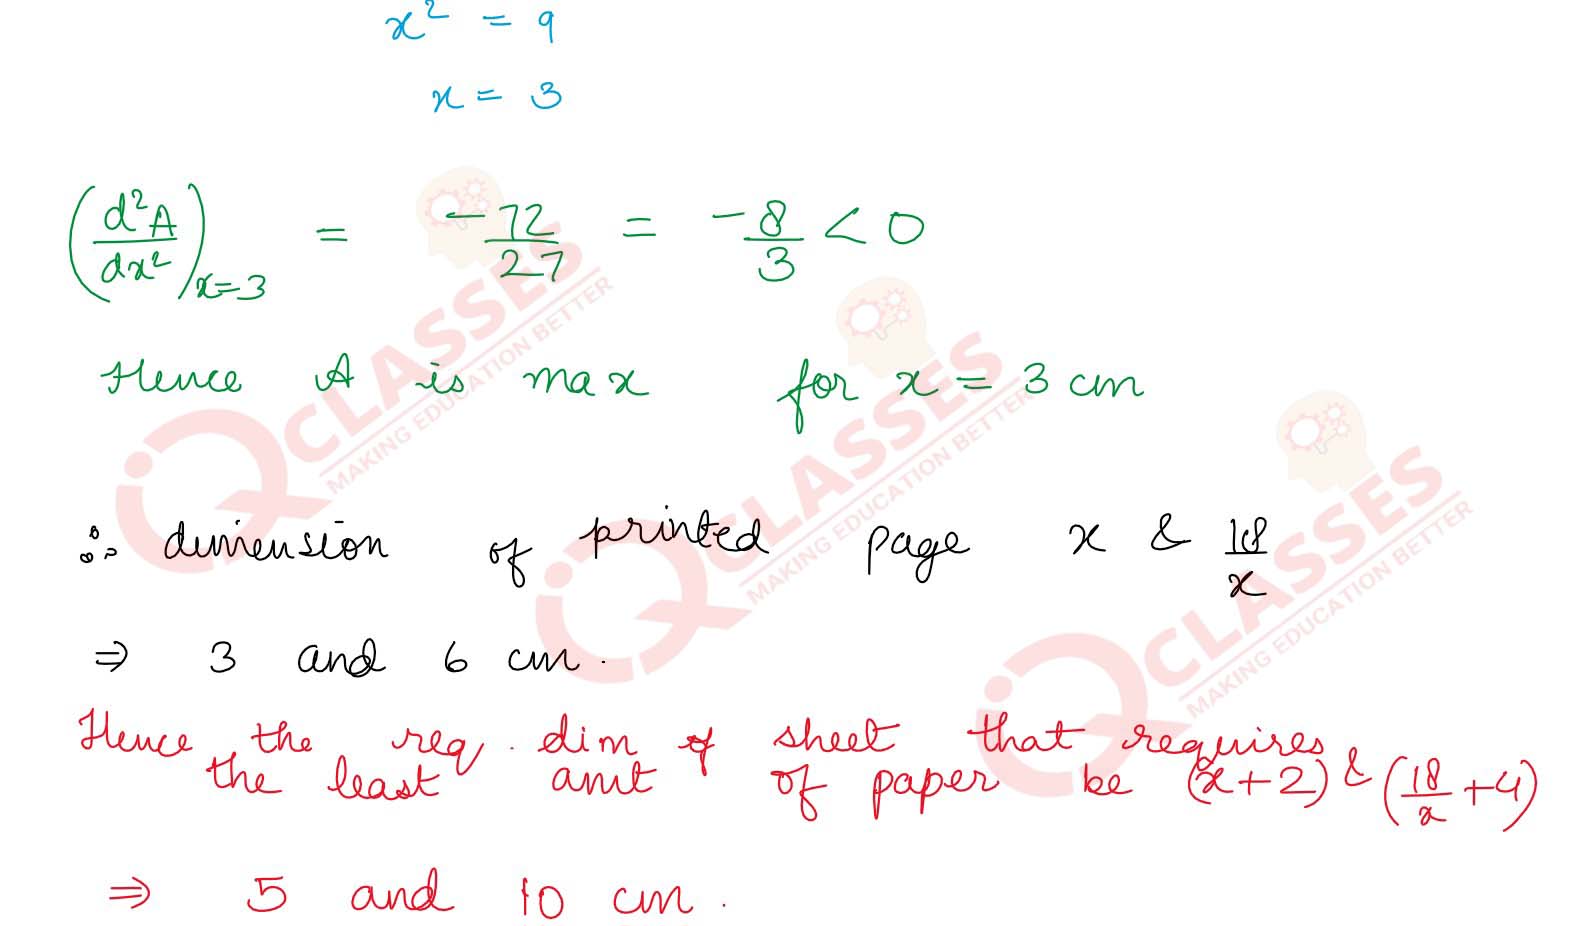 x² = 9
x = 3
(d²A/dx²)x=3 = -72/27 = -8/3 < 0
Hence A is max for x = 3 cm
∴ dimension of printed page x & 18/x
⇒ 3 and 6 cm.
Hence the req. dim of sheet that requires
the least amt of paper be (x+2) & (18/x +4)
⇒ 5 and 10 cm.
iQ CLASSES
MAKING EDUCATION BETTER
iQ CLASSES
MAKING EDUCATION BETTER
iQ CLASSES
MAKING EDUCATION BETTER